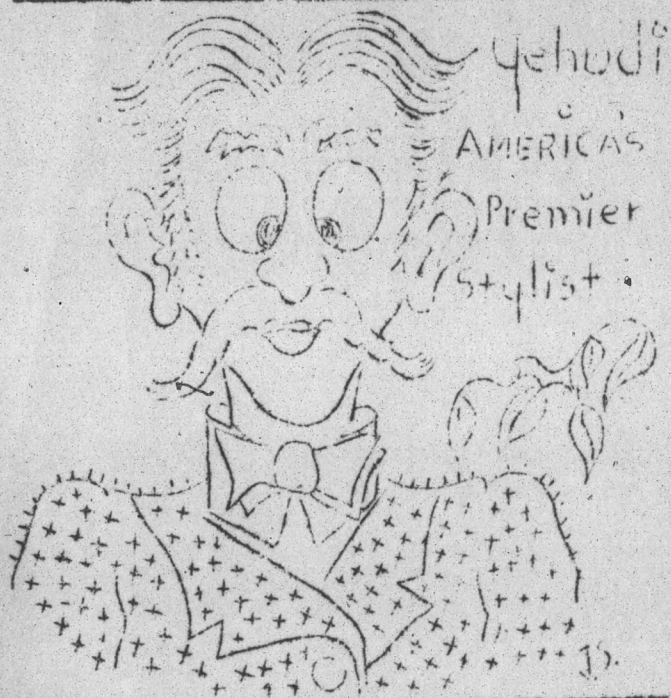 Yehudi
AMERICA'S
Premier
Stylist.
JS.